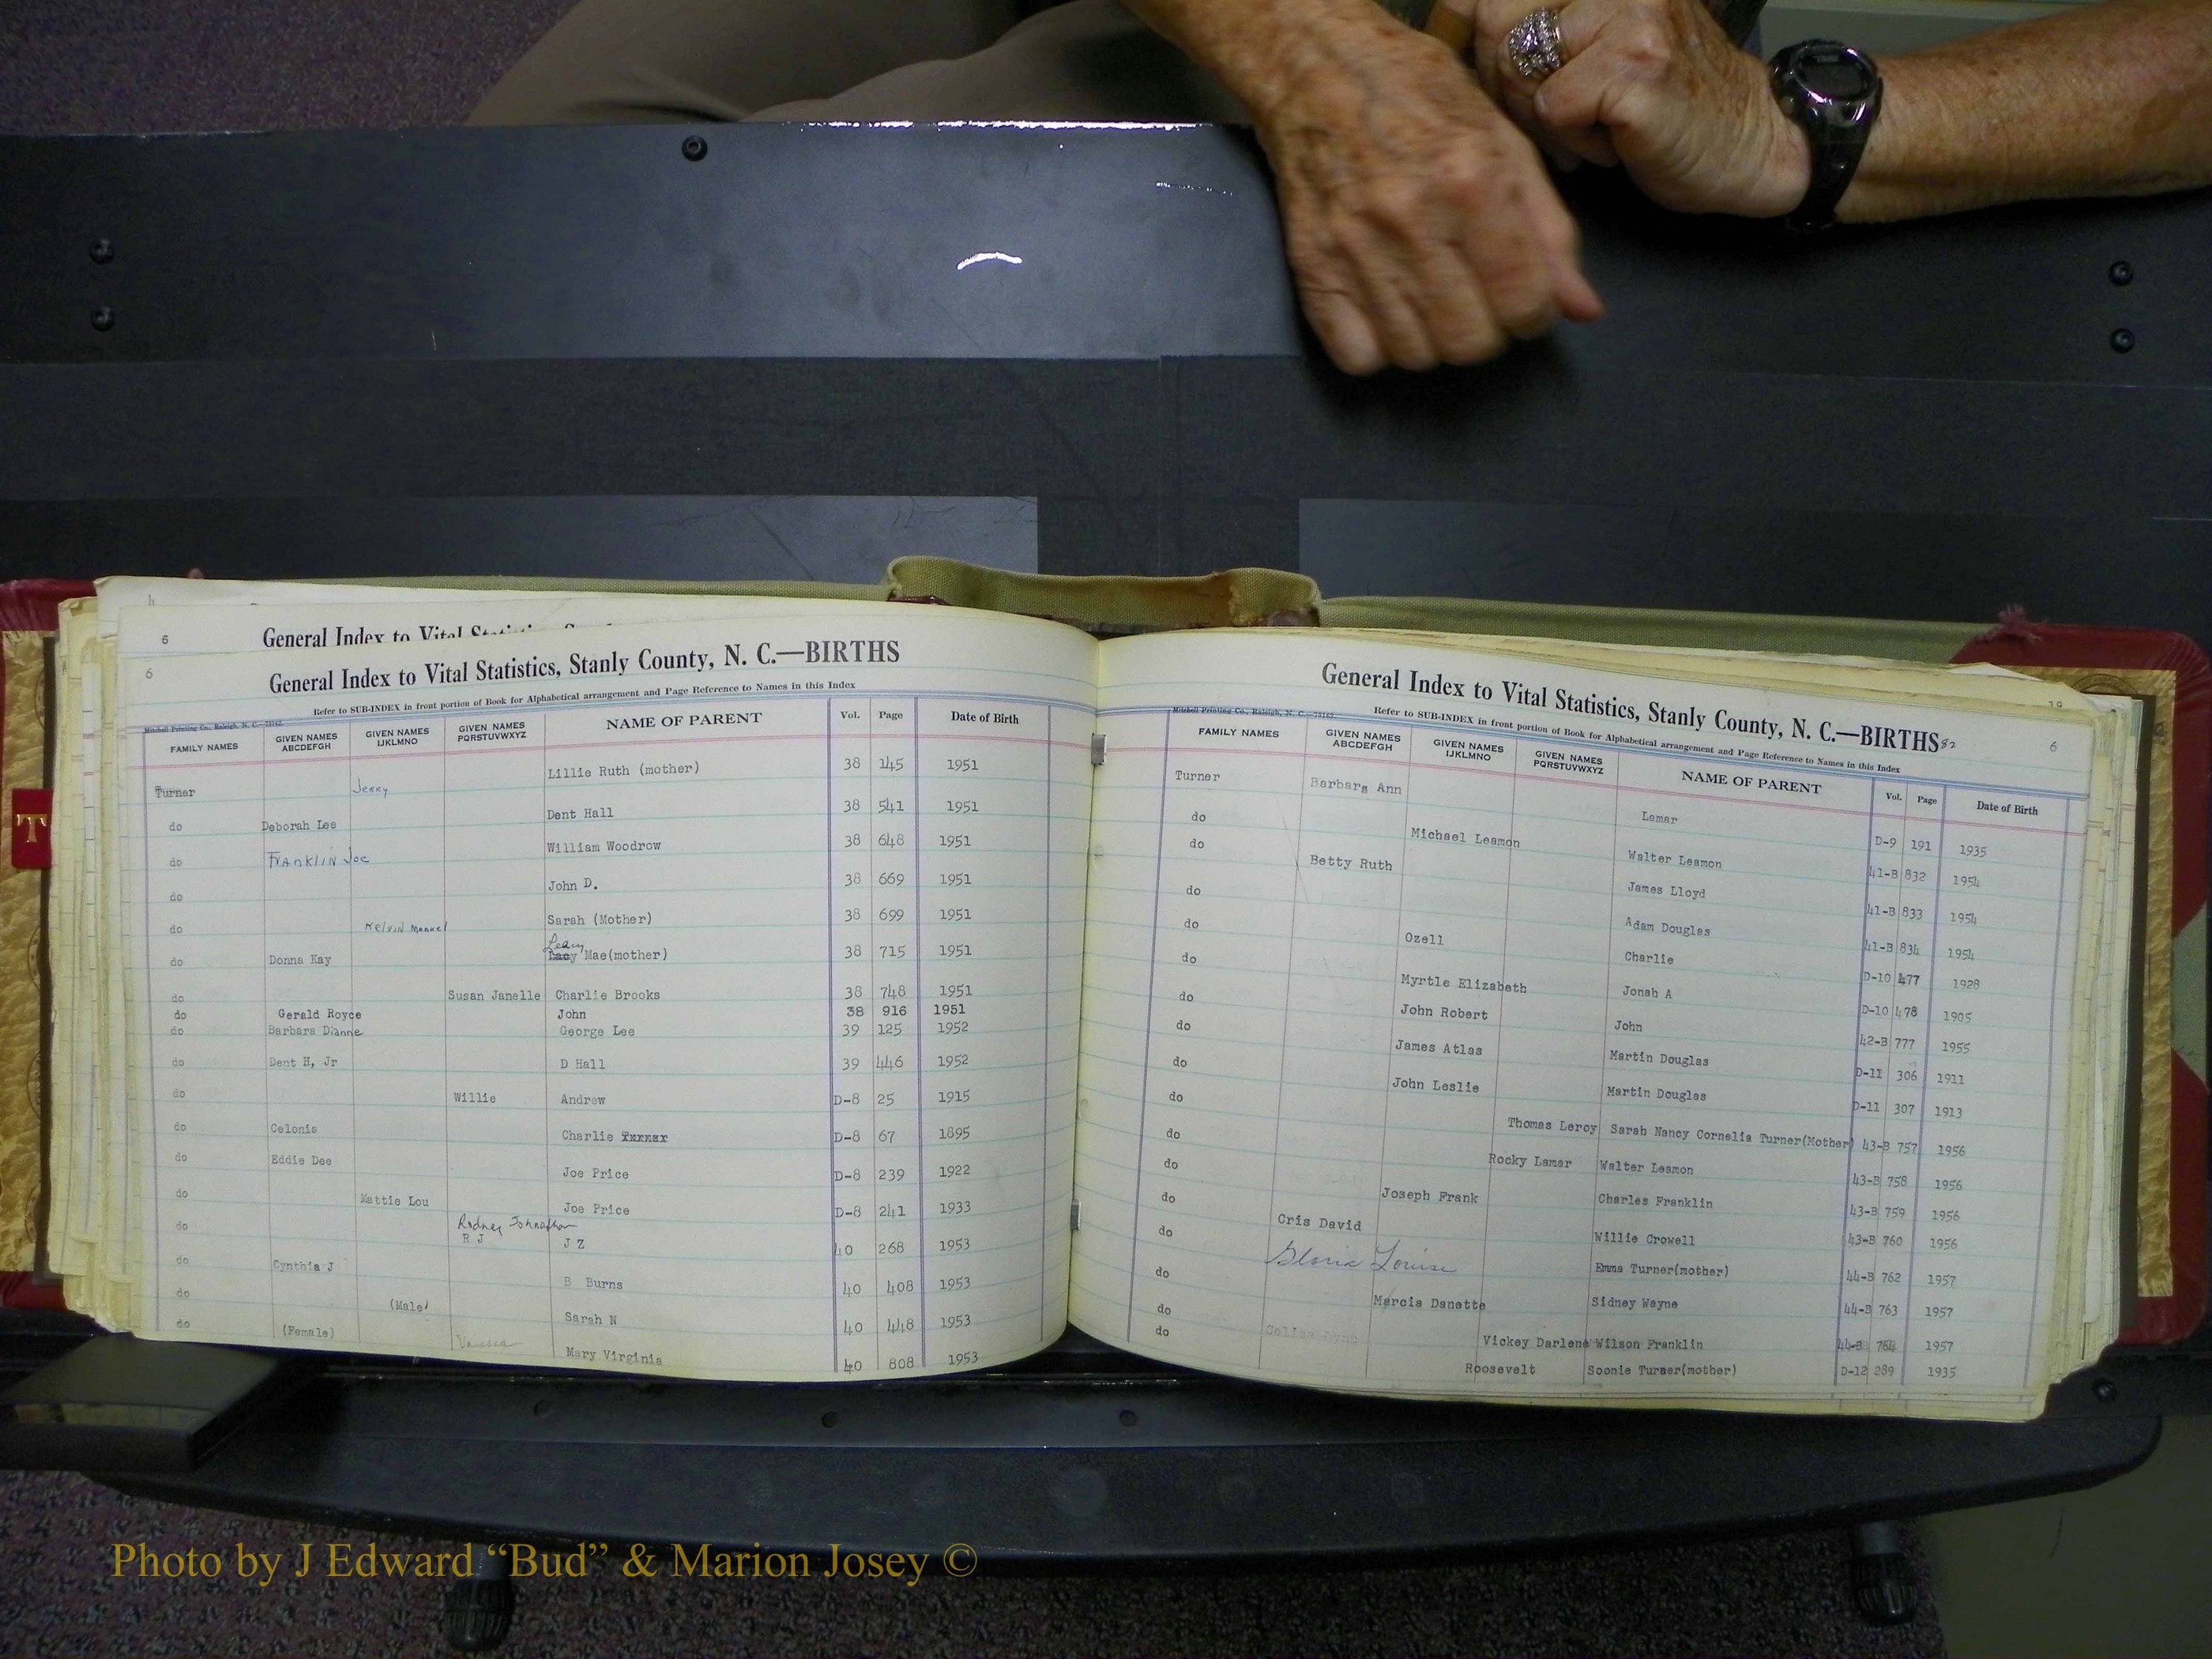 6 General Index to Vital Statistics
6
General Index to Vital Statistics, Stanly County, N. C.—BIRTHS
Refer to SUB-INDEX in front portion of Book for Alphabetical arrangement and Page Reference to Names in this Index
Mitchell Printing Co., Raleigh, N. C.—73162
FAMILY NAMES GIVEN NAMES ABCDEFGH GIVEN NAMES IJKLMNO GIVEN NAMES PQRSTUVWXYZ NAME OF PARENT Vol. Page Date of Birth
Turner Jerry Lillie Ruth (mother) 38 145 1951
do Deborah Lee Dent Hall 38 541 1951
do Franklin Joe William Woodrow 38 648 1951
do John D. 38 669 1951
do Melvin Manuel Sarah (Mother) 38 699 1951
do Donna Kay Leacy Mae(mother) 38 715 1951
do Susan Janelle Charlie Brooks 38 748 1951
do Gerald Royce John 38 916 1951
do Barbara Dianne George Lee 39 125 1952
do Dent H, Jr D Hall 39 446 1952
do Willie Andrew D-8 25 1915
do Celonis Charlie D-8 67 1895
do Eddie Dee Joe Price D-8 239 1922
do Mattie Lou Joe Price D-8 241 1933
do Rodney Johnathon R J J Z 40 268 1953
do Cynthia J B Burns 40 408 1953
do (Male) Sarah N 40 448 1953
do (Female) Vanessa Mary Virginia 40 808 1953
General Index to Vital Statistics, Stanly County, N. C.—BIRTHS 82 6
Refer to SUB-INDEX in front portion of Book for Alphabetical arrangement and Page Reference to Names in this Index
Mitchell Printing Co., Raleigh, N. C.—73162
FAMILY NAMES GIVEN NAMES ABCDEFGH GIVEN NAMES IJKLMNO GIVEN NAMES PQRSTUVWXYZ NAME OF PARENT Vol. Page Date of Birth
Turner Barbara Ann Lamar D-9 191 1935
do Michael Leamon Walter Leamon 41-B 832 1954
do Betty Ruth James Lloyd 41-B 833 1954
do Adam Douglas 41-B 834 1954
do Ozell Charlie D-10 477 1928
do Myrtle Elizabeth Jonah A D-10 478 1905
do John Robert John 42-B 777 1955
do James Atlas Martin Douglas D-11 306 1911
do John Leslie Martin Douglas D-11 307 1913
do Thomas Leroy Sarah Nancy Cornelia Turner(Mother) 43-B 757 1956
do Rocky Lamar Walter Leamon 43-B 758 1956
do Joseph Frank Charles Franklin 43-B 759 1956
do Cris David Willie Crowell 43-B 760 1956
do Gloria Louise Emma Turner(mother) 44-B 762 1957
do Marcia Danette Sidney Wayne 44-B 763 1957
do Vickey Darlene Wilson Franklin 44-B 764 1957
do Roosevelt Soonie Turner(mother) D-12 289 1935
T
Photo by J Edward “Bud” & Marion Josey ©